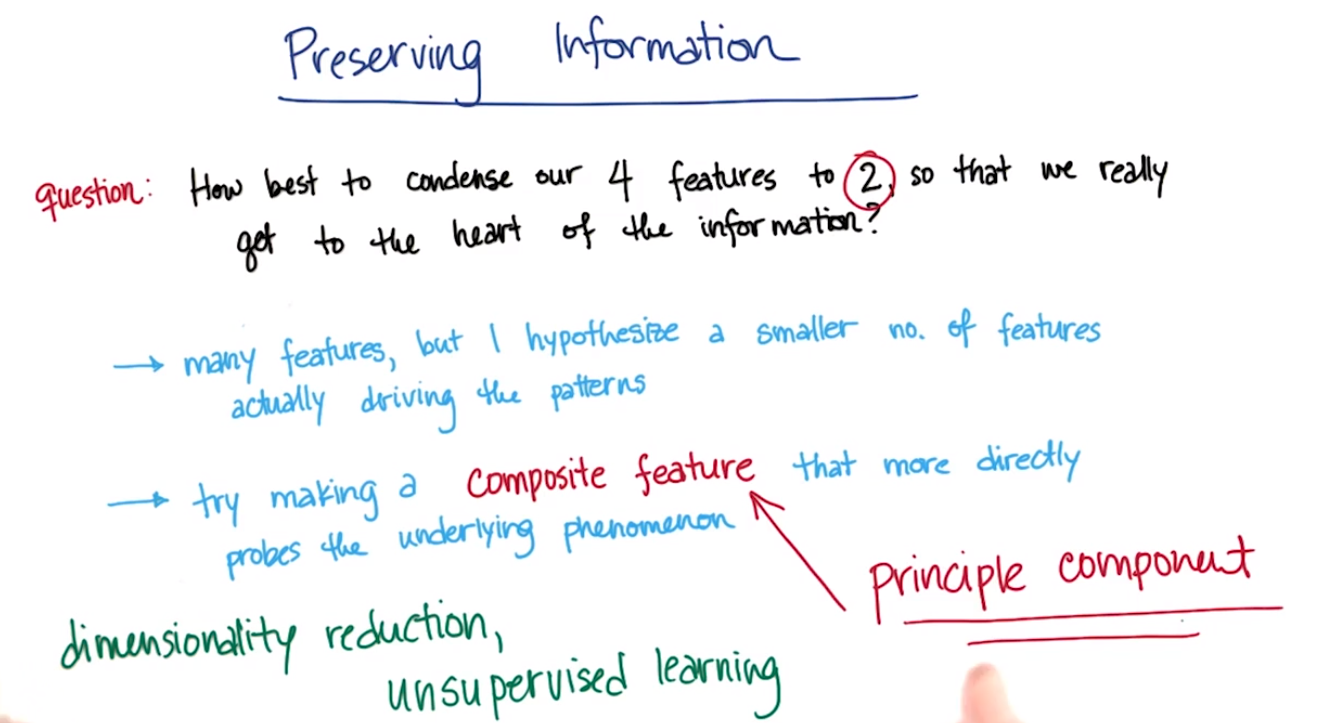 Preserving Information
question: How best to condense our 4 features to 2, so that we really
get to the heart of the information?
→ many features, but I hypothesize a smaller no. of features
actually driving the patterns
→ try making a composite feature that more directly
probes the underlying phenomenon
principle component
dimensionality reduction,
unsupervised learning